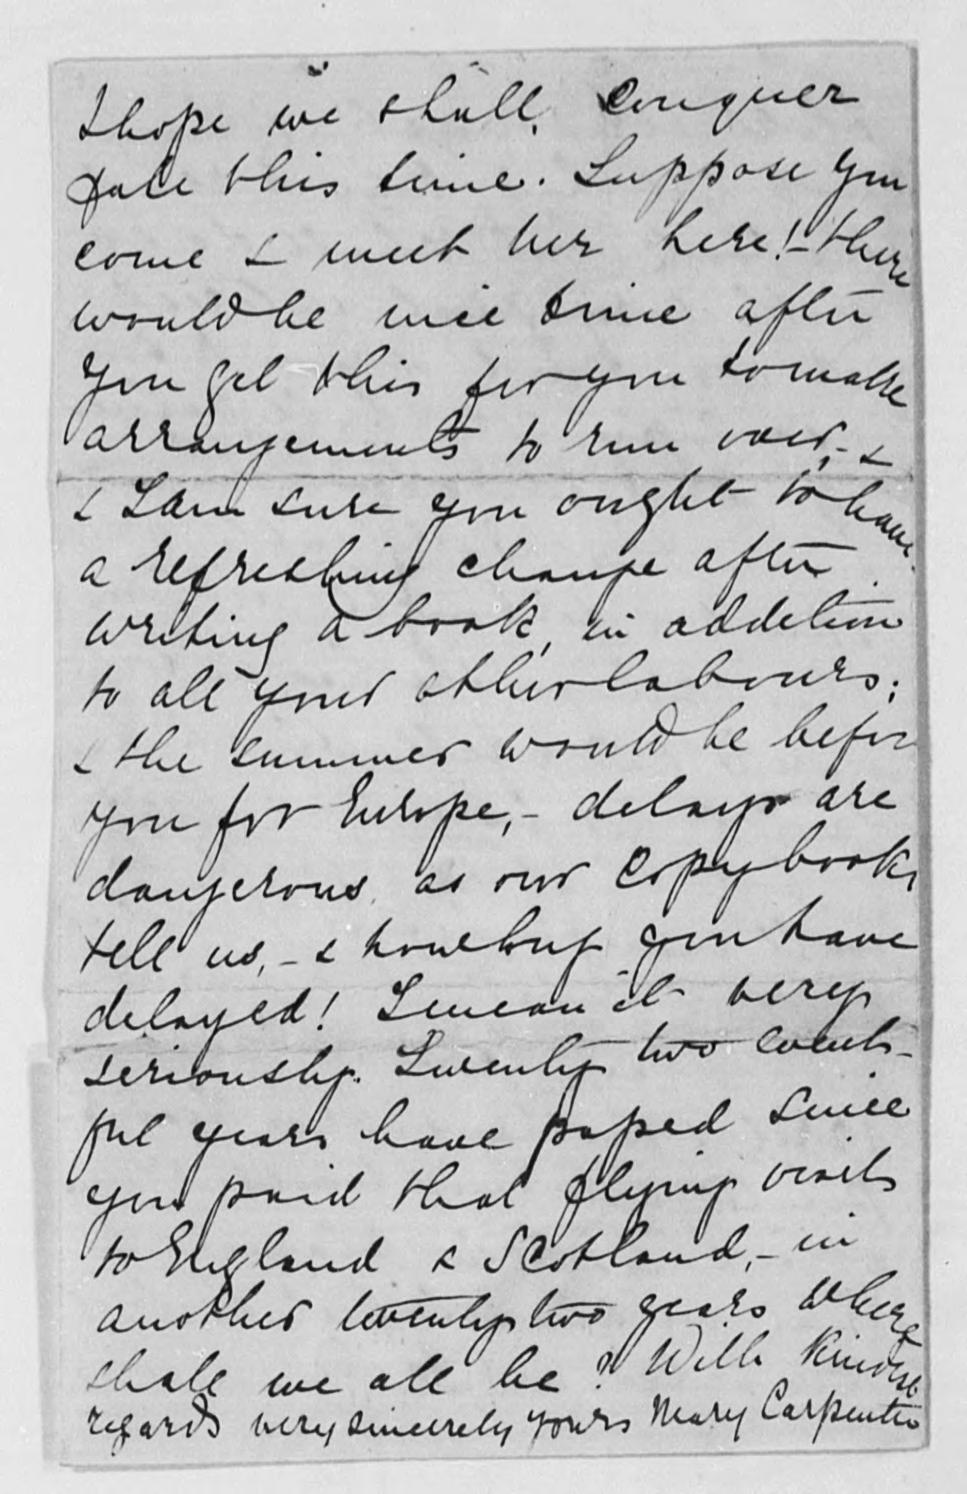 I hope we shall conquer
fate this time. Suppose you
come & meet her here! - there
would be nice time after
you get this for you to make
arrangements to run over, - &
& I am sure you ought to have
a refreshing change after
writing a book, in addition
to all your other labours;
& the summer would be before
you for Europe, - delays are
dangerous, as our copybooks
tell us, - & how long you have
delayed! I mean it very
seriously. Twenty two event-
ful years have passed since
you paid that flying visit
to England & Scotland, - in
another twenty two years where
shall we all be? With kindest
regards very sincerely yours Mary Carpenter